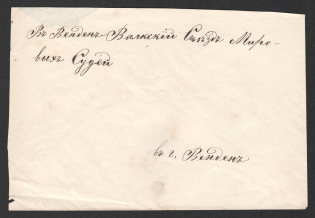 Въ Венденъ Валкскій Съѣздъ Миро-
выхъ Судей
въ г. Венденъ